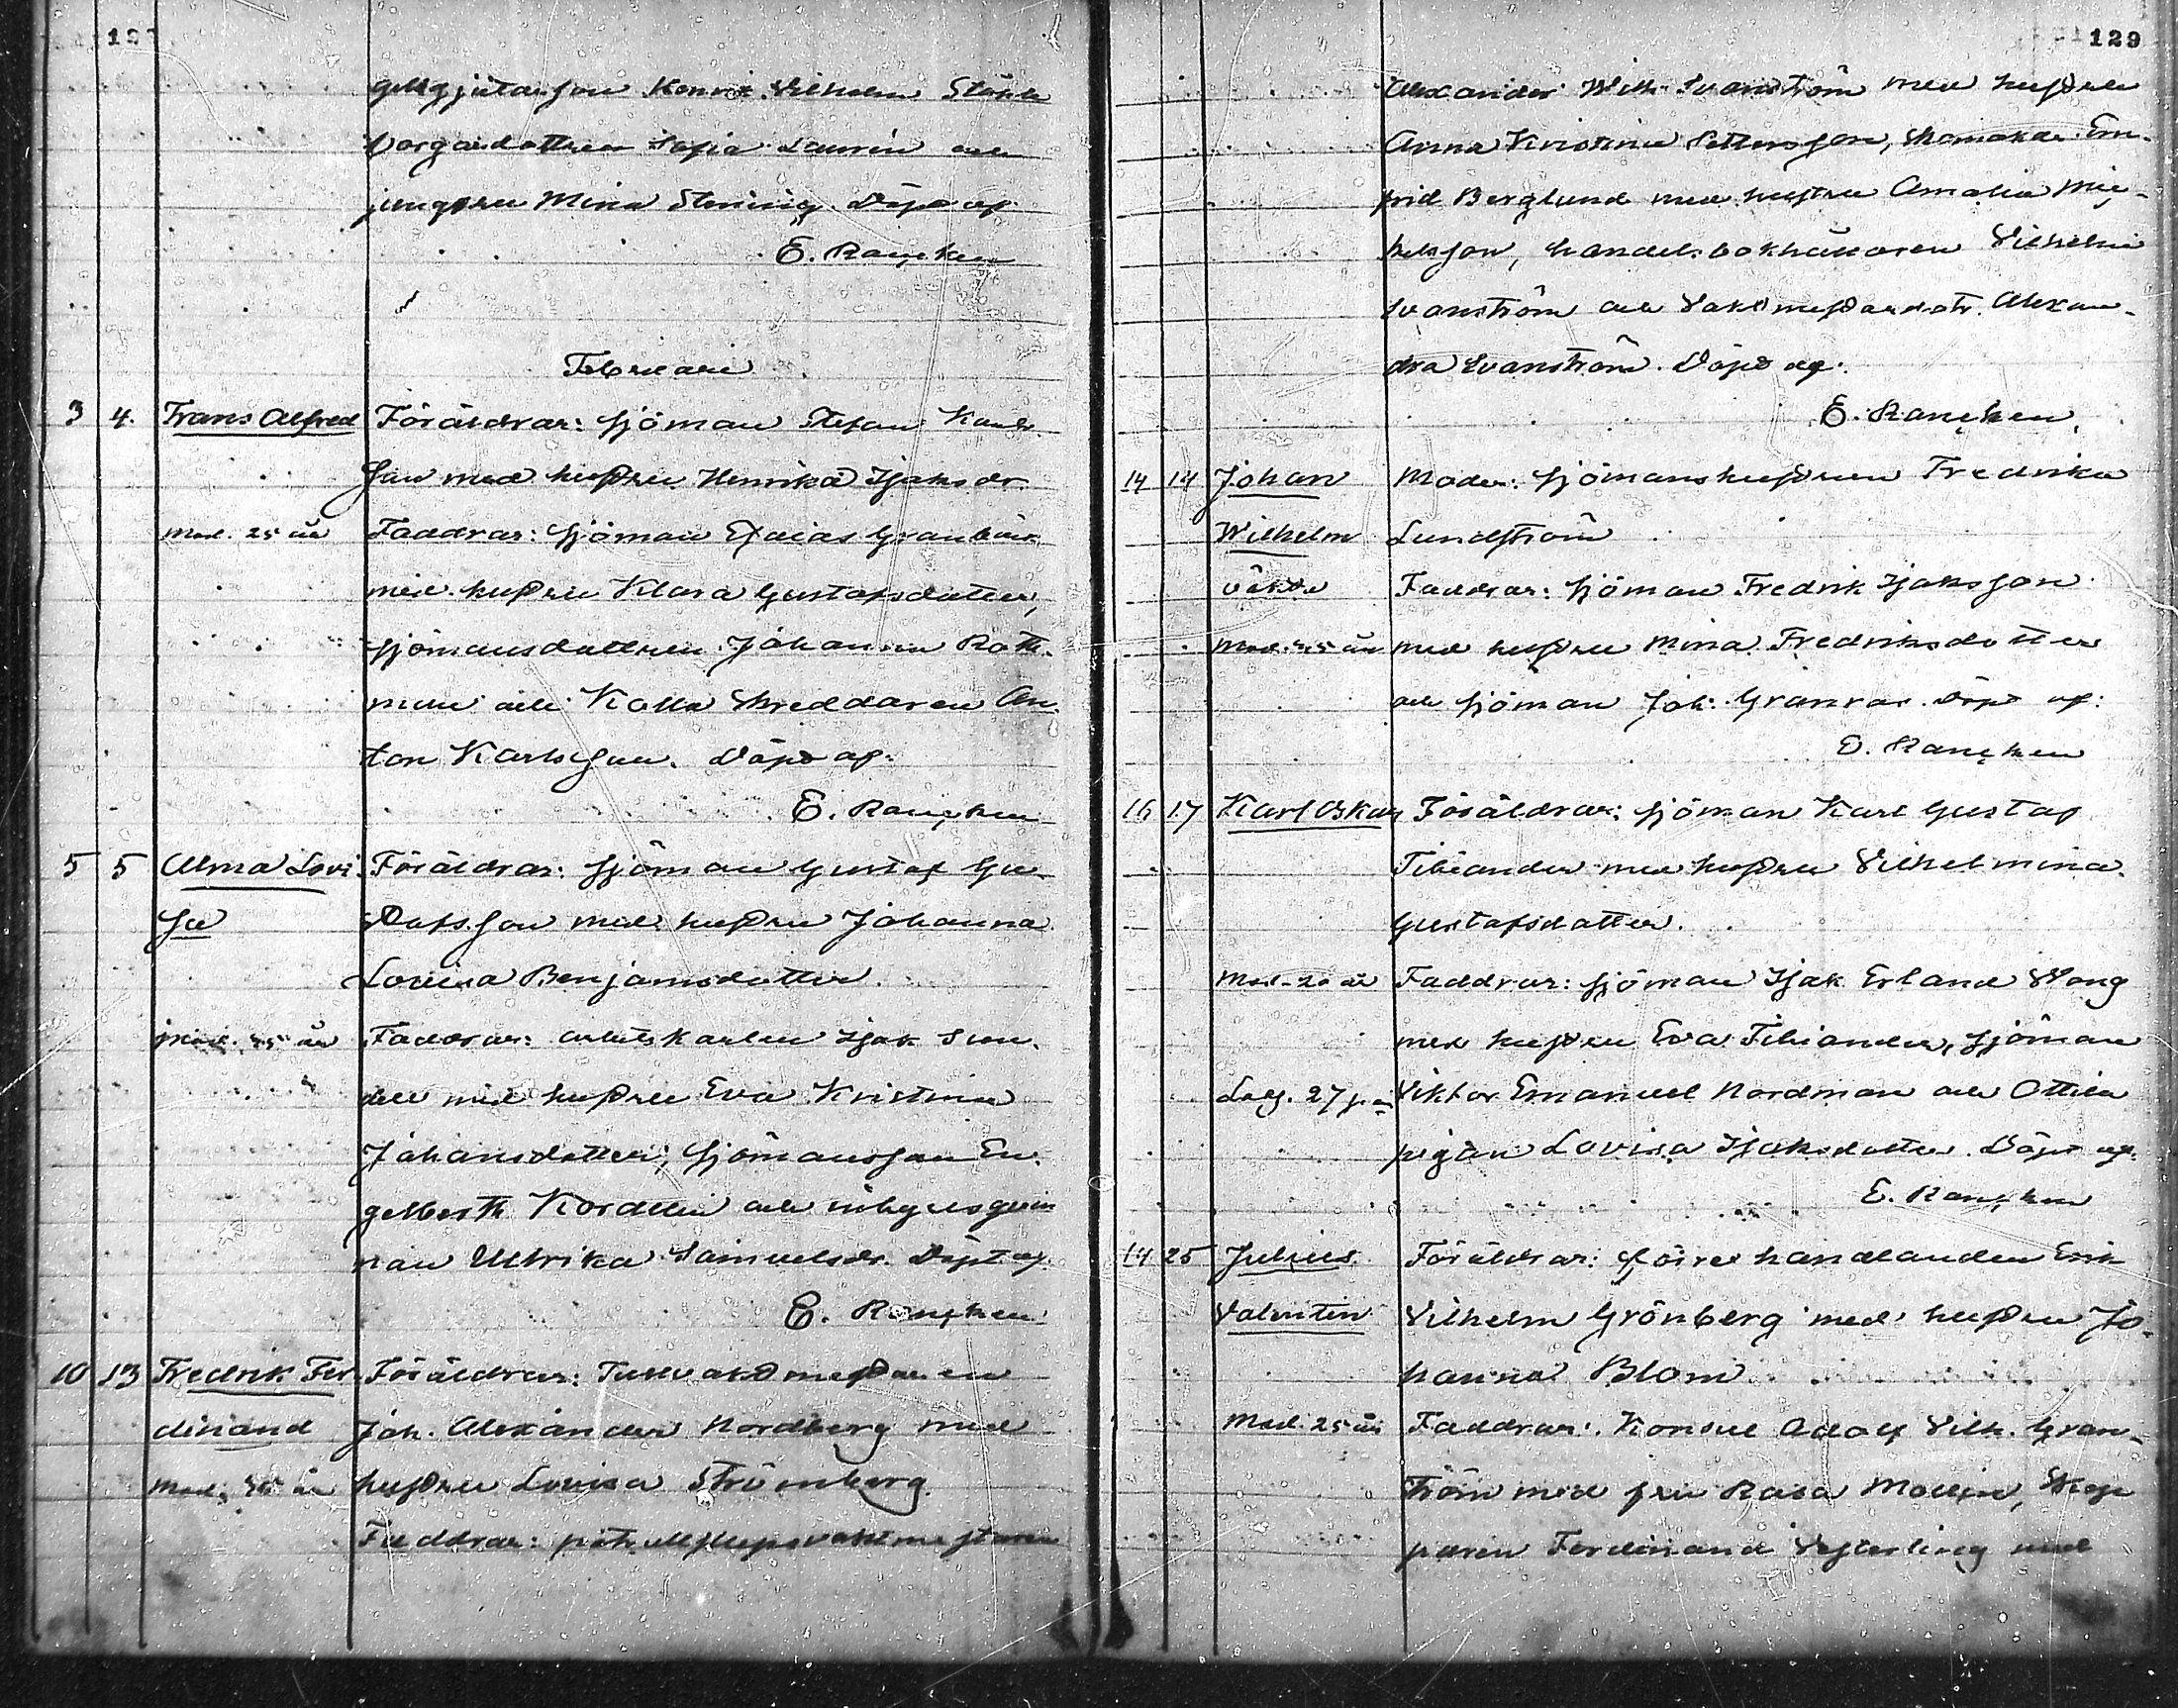 12
gellgjutarson Henrik Vilhelm Stönk
borgardottren Sofia Laurin och
jungfru Mina Stening. Döpt af
E. Rancken
Februari
3 4. Frans Alfred Föräldrar: sjöman Stefan Karls
son med hustru Henrika Isaksdr.
Mod. 25 år Faddrar: sjöman Esaias Granbäck
med hustru Klara Gustafsdotter,
sjömansdottren Johanna Roth-
man och Kalla skreddaren An-
ton Karlsson. Döpt af
E. Rancken
5 5 Alma Lovi- Föräldrar: sjöman Gustaf Gu-
sa stafsson med hustru Johanna
Lovisa Benjamsdotter.
Mod. 45 år Faddrar: arbetskarlen Isak Sun-
dell med hustru Eva Kristina
Johansdotter, sjömansson En-
gelberth Kordelin och inhysesqvin
nan Ullrika Samuelsdr. Döpt af
E. Rancken
10 13 Fredrik Fer- Föräldrar: Tullvaktmestaren
dinand Joh. Alexander Nordberg med
Mod. 40 år hustru Lovisa Strömberg.
Faddrar: patrullslupsvaktmestaren
129
Alexander Wilh. Svanström med hustru
Anna Kristina Pettersson, skomakar Em-
frid Berglund med hustru Amalia Mic-
kelsson, handelsbokhållaren Vilhelm
Svanström och Vaktmestaredotr. Alexan-
dra Svanström. Döpt af:
E. Rancken.
14 14 Johan Moder: sjömanshustrun Fredrika
Wilhelm Lundström
oäkta Faddrar: sjöman Fredrik Isaksson
Mod. 45 år med hustru Mina Fredriksdotter
och sjöman Joh. Granroos. Döpt af:
E. Rancken
16 17 Karl Oskar Föräldrar: sjöman Karl Gustaf
Tiliander med hustru Vilhelmina
Gustafsdotter.
Mod. 20 år Faddrar: sjöman Isak Erland Wong
med hustru Eva Tiliander, sjöman
Viktor Emanuel Nordman och Ottila
pigan Lovisa Isaksdotter. Döpt af:
E. Rancken
14 25 Julius Föräldrar: förre handlanden Erik
Valentin Vilhelm Grönberg med hustru Jo-
hanna Blom
Mod. 25 år Faddrar: Konsul Adolf Vilh. Gran-
ström med fru Rosa Molin, Skep
paren Ferdinand Vesterling med